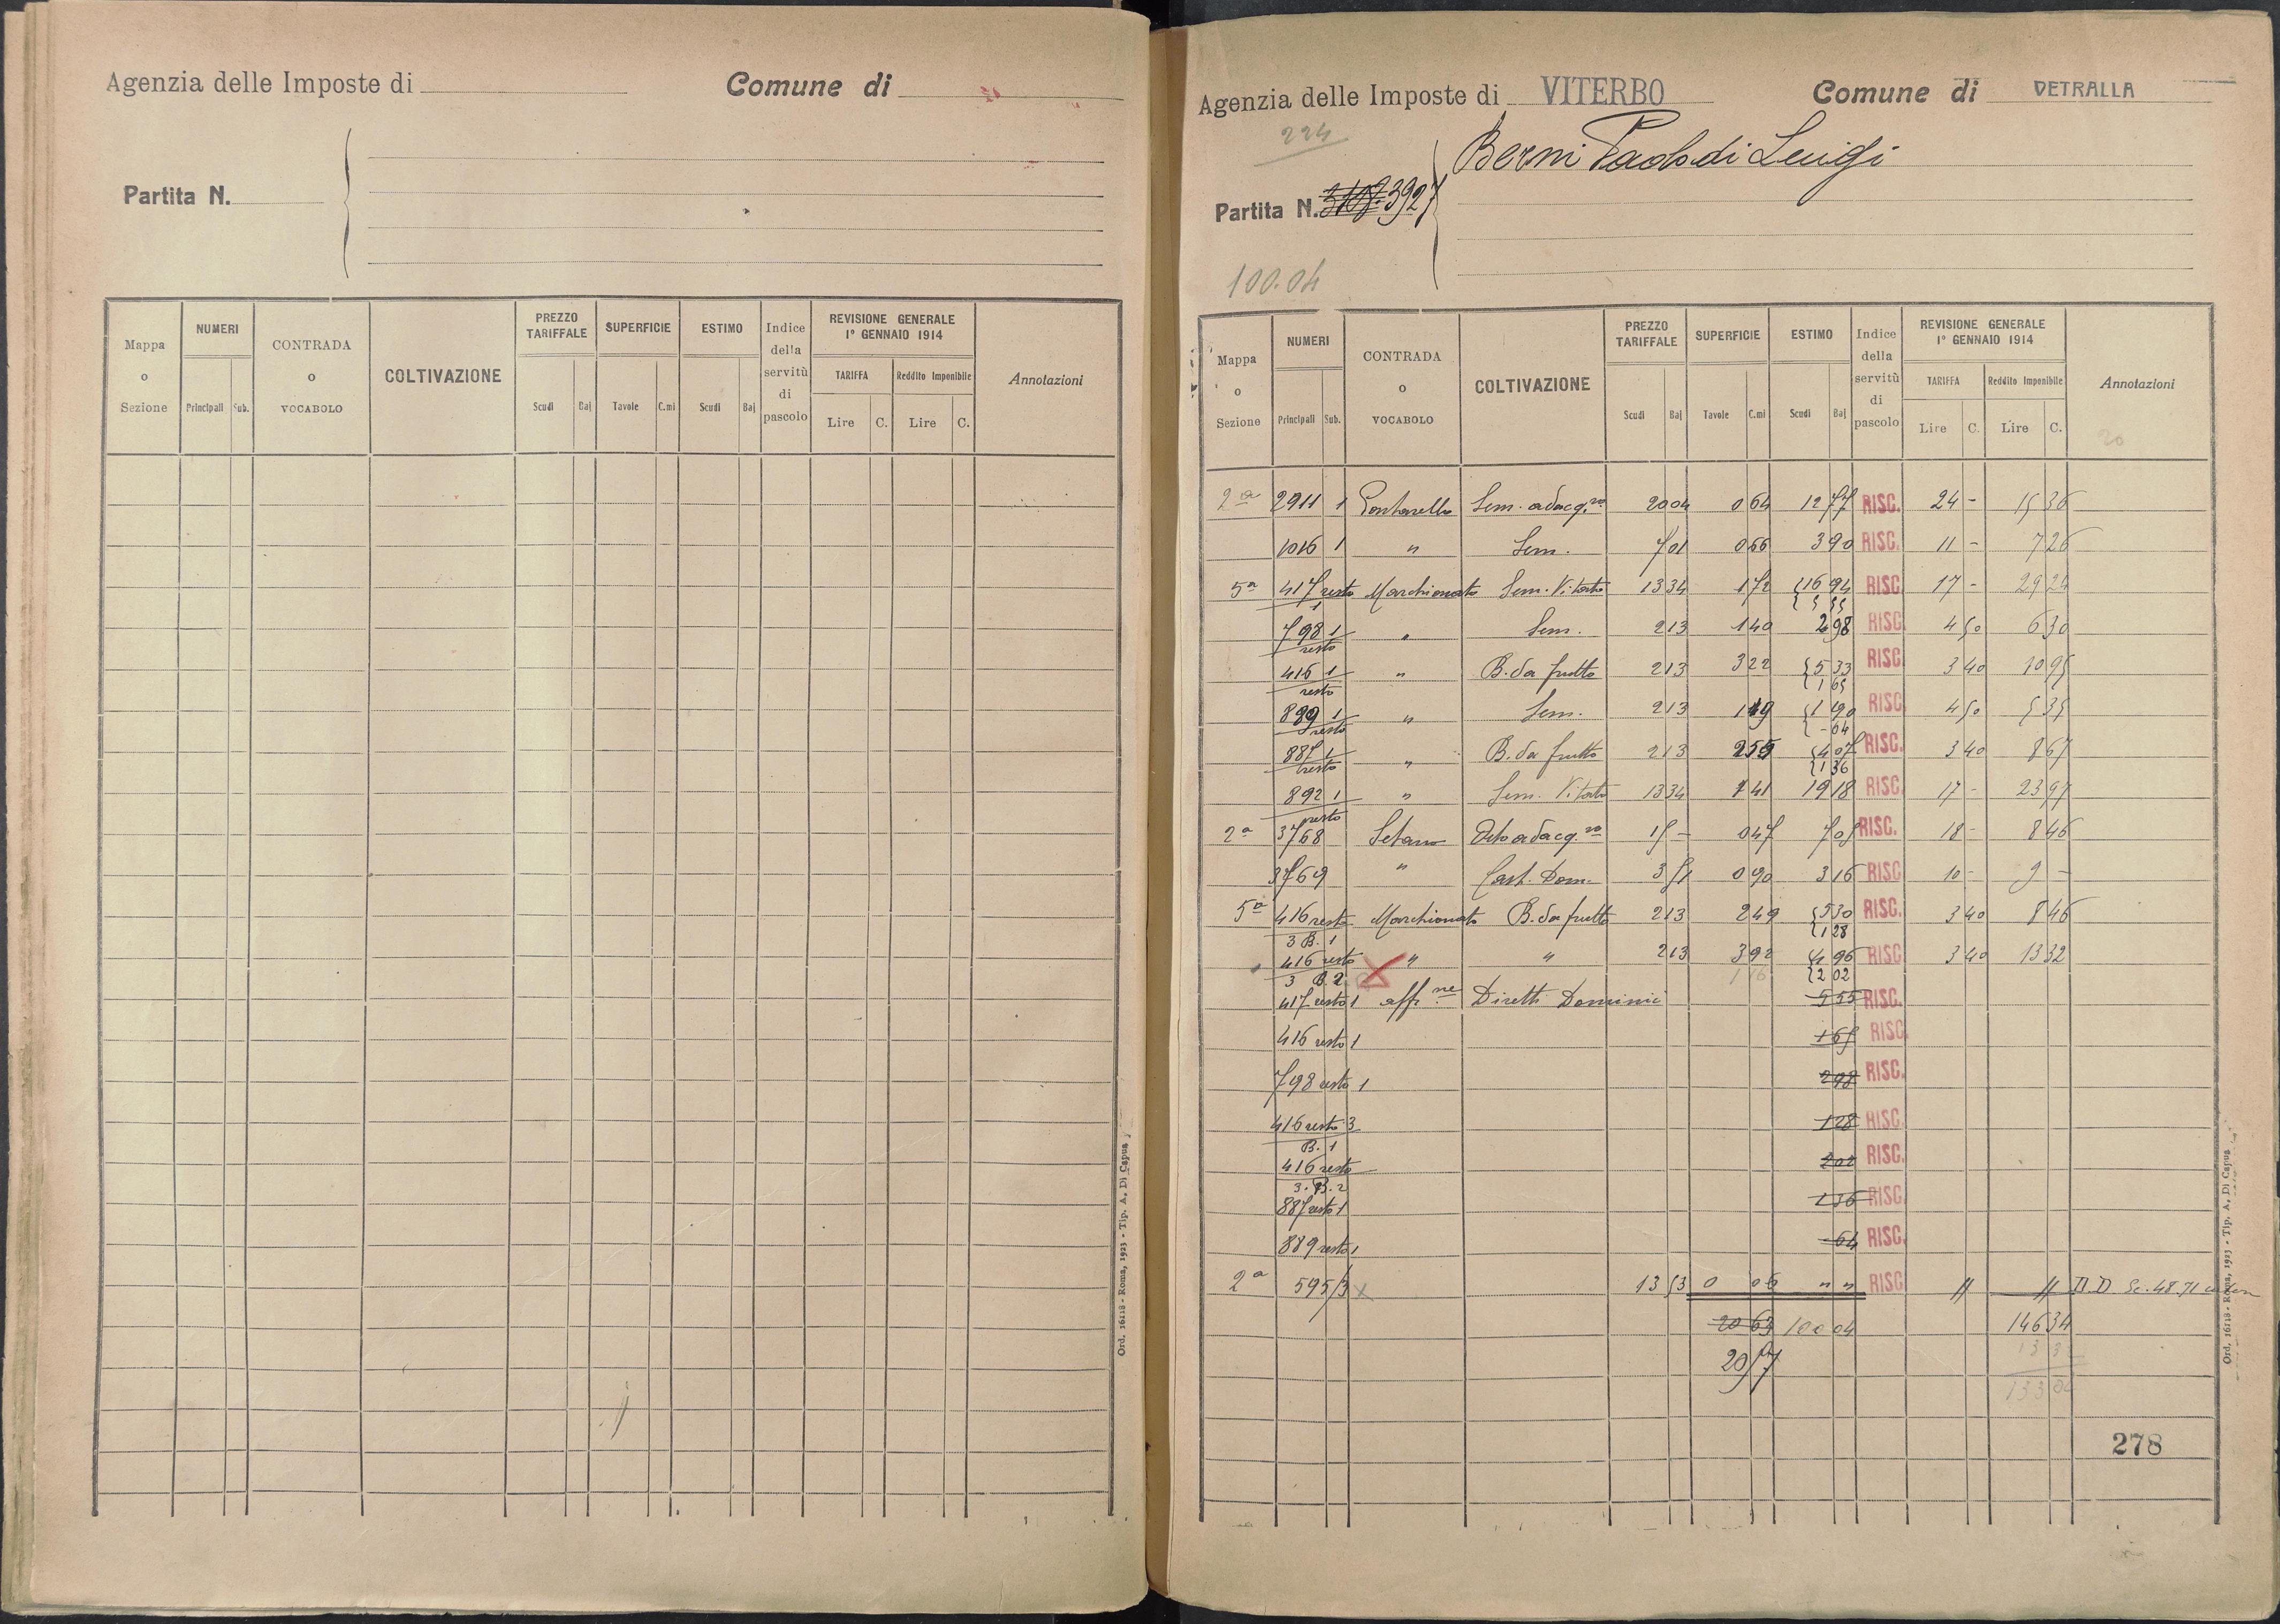 Agenzia delle Imposte di
Comune di
Partita N.
Mappa o Sezione
NUMERI
Principali Sub.
CONTRADA o VOCABOLO
COLTIVAZIONE
PREZZO TARIFFALE
Scudi Baj
SUPERFICIE
Tavole C.mi
ESTIMO
Scudi Baj
Indice della servitù di pascolo
REVISIONE GENERALE 1º GENNAIO 1914
TARIFFA
Lire C.
Reddito Imponibile
Lire C.
Annotazioni
Ord. 16118 - Roma, 1923 - Tip. A. Di Capua
Agenzia delle Imposte di VITERBO
Comune di VETRALLA
224
Berni Paolo di Luigi
Partita N. 3927
100.04
Mappa o Sezione
NUMERI
Principali Sub.
CONTRADA o VOCABOLO
COLTIVAZIONE
PREZZO TARIFFALE
Scudi Baj
SUPERFICIE
Tavole C.mi
ESTIMO
Scudi Baj
Indice della servitù di pascolo
REVISIONE GENERALE 1º GENNAIO 1914
TARIFFA
Lire C.
Reddito Imponibile
Lire C.
Annotazioni
20
2ª 2911 1 Sem. adacq.vo 20 04 0 64 12 77 RISC. 24 - 15 36
1016 1 " Sem. 7 01 0 66 3 90 RISC. 11 - 7 26
5ª 417 resto 1 Marchionato Sem. Vitato 13 34 1 72 16 94 5 55 RISC. 17 - 29 24
798 1 resto " Sem. 2 13 1 40 2 98 RISC. 4 50 6 30
416 1 resto " B. da frutto 2 13 3 22 5 33 1 65 RISC. 3 40 10 95
889 1 resto " Sem. 2 13 1 19 1 90 - 64 RISC. 4 50 5 35
887 1 resto " B. da frutto 2 13 2 55 4 07 1 36 RISC. 3 40 8 67
892 1 resto " Sem. Vitato 13 34 1 41 19 18 RISC. 17 - 23 97
2ª 3768 Orto adacq.vo 15 - 0 47 7 05 RISC. 18 - 8 46
3769 " Cast. Dom. 3 51 0 90 3 16 RISC. 10 - 9 -
5ª 416 resto 3 B. 1 Marchionato B. da frutto 2 13 2 49 5 30 1 28 RISC. 3 40 8 46
416 resto 3 B. 2 " " 2 13 3 92 4 96 2 02 RISC. 3 40 13 32
417 resto 1 aff.ne Diretti Dominii 5 55 RISC.
416 resto 1 1 65 RISC.
798 resto 1 2 98 RISC.
416 resto 3 B. 1 1 28 RISC.
416 resto 3. B. 2 2 02 RISC.
887 resto 1 1 36 RISC.
889 resto 1 - 64 RISC.
2ª 595/3 x 13 53 0 06 " " RISC. " " D.D. Sc. 48.71
20 63 100 04 146 34
20 57
278
Ord. 16118 - Roma, 1923 - Tip. A. Di Capua